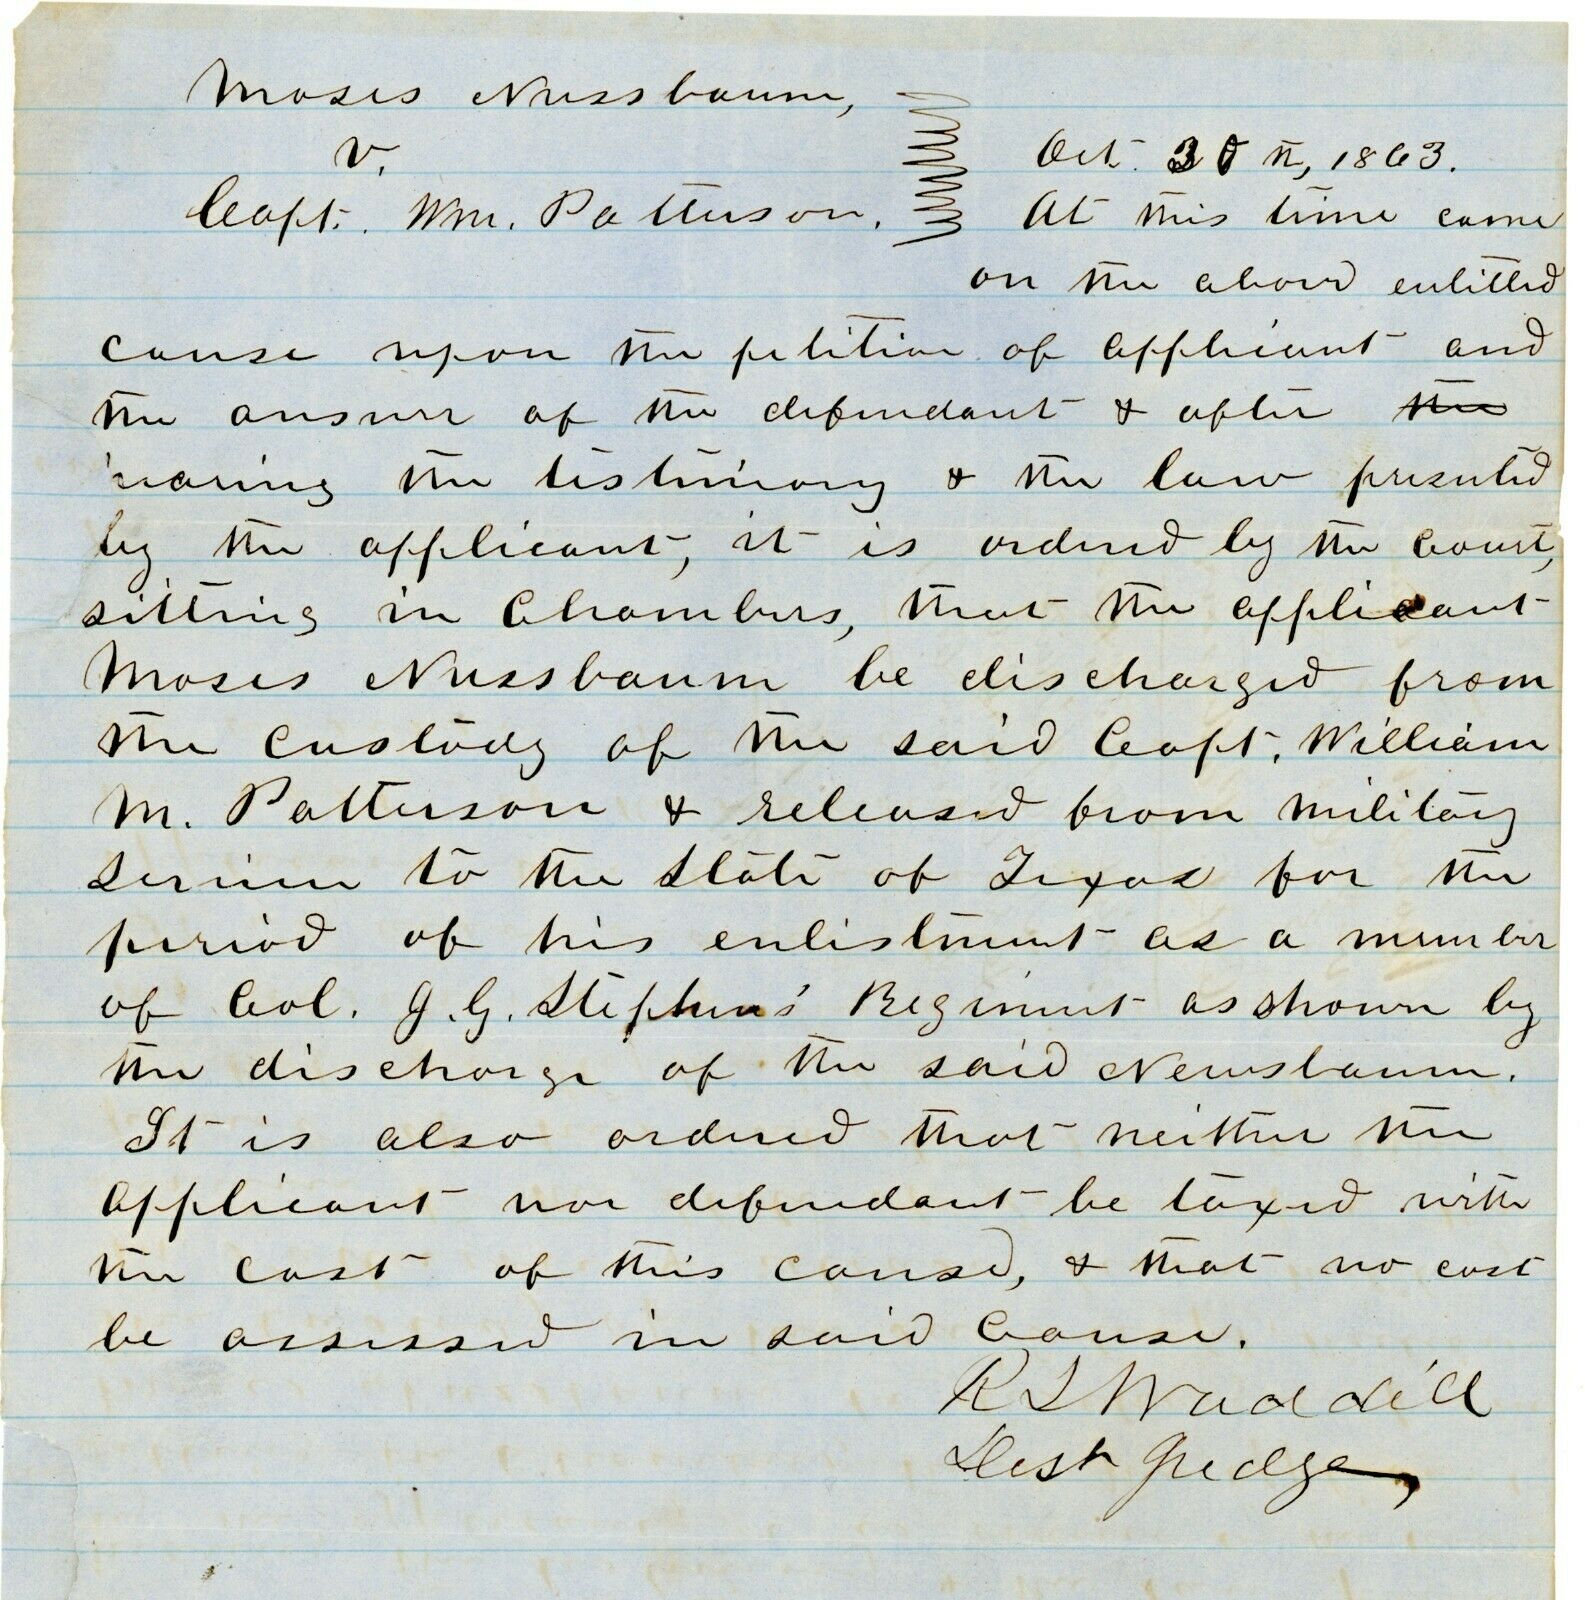 Moses Nussbaum,
v.
Capt. Wm. Patterson.
Oct. 30th, 1863.
At this time came
on the above entitled
cause upon the petition of applicant and
the answer of the defendant & after the
hearing the testimony & the law presented
by the applicant, it is ordered by the Court,
sitting in Chambers, that the applicant
Moses Nussbaum be discharged from
the custody of the said Capt. William
M. Patterson & released from military
service to the State of Texas for the
period of his enlistment as a member
of Col. J. G. Stephens' Regiment as shown by
the discharge of the said Newsbaum.
It is also ordered that neither the
applicant nor defendant be taxed with
the cost of this cause, & that no cost
be assessed in said Cause.
Waddill
Dist Judge,